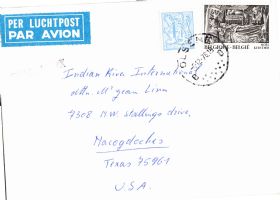 PER LUCHTPOST
PAR AVION
BELGIQUE-BELGIË
Indian River International
attn. Mr Jean Linn
7308 N.W. Stallings drive,
Nacogdoches
Texas 75961
U.S.A.